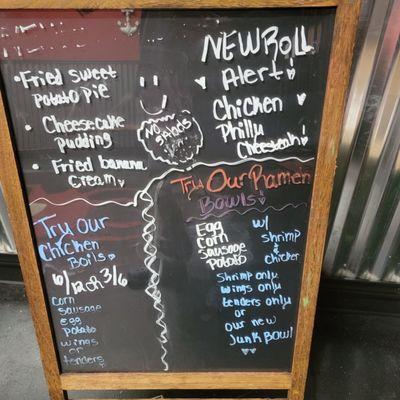 Fried sweet
potato pie
Cheesecake
pudding
Fried banana
cream
NOW
SALADS
NEW Roll
Alert!
Chicken
Philly
Cheeseteak!
Try Our
Chicken
Boils
Corn
sausage
egg
potato
wings
or
tenders
Try Our Ramen
Bowls!
Egg
Corn
Sausage
potato
w/
shrimp
&
chicken
Shrimp only
wings only
tenders only
or
our new
JUNK BOWL